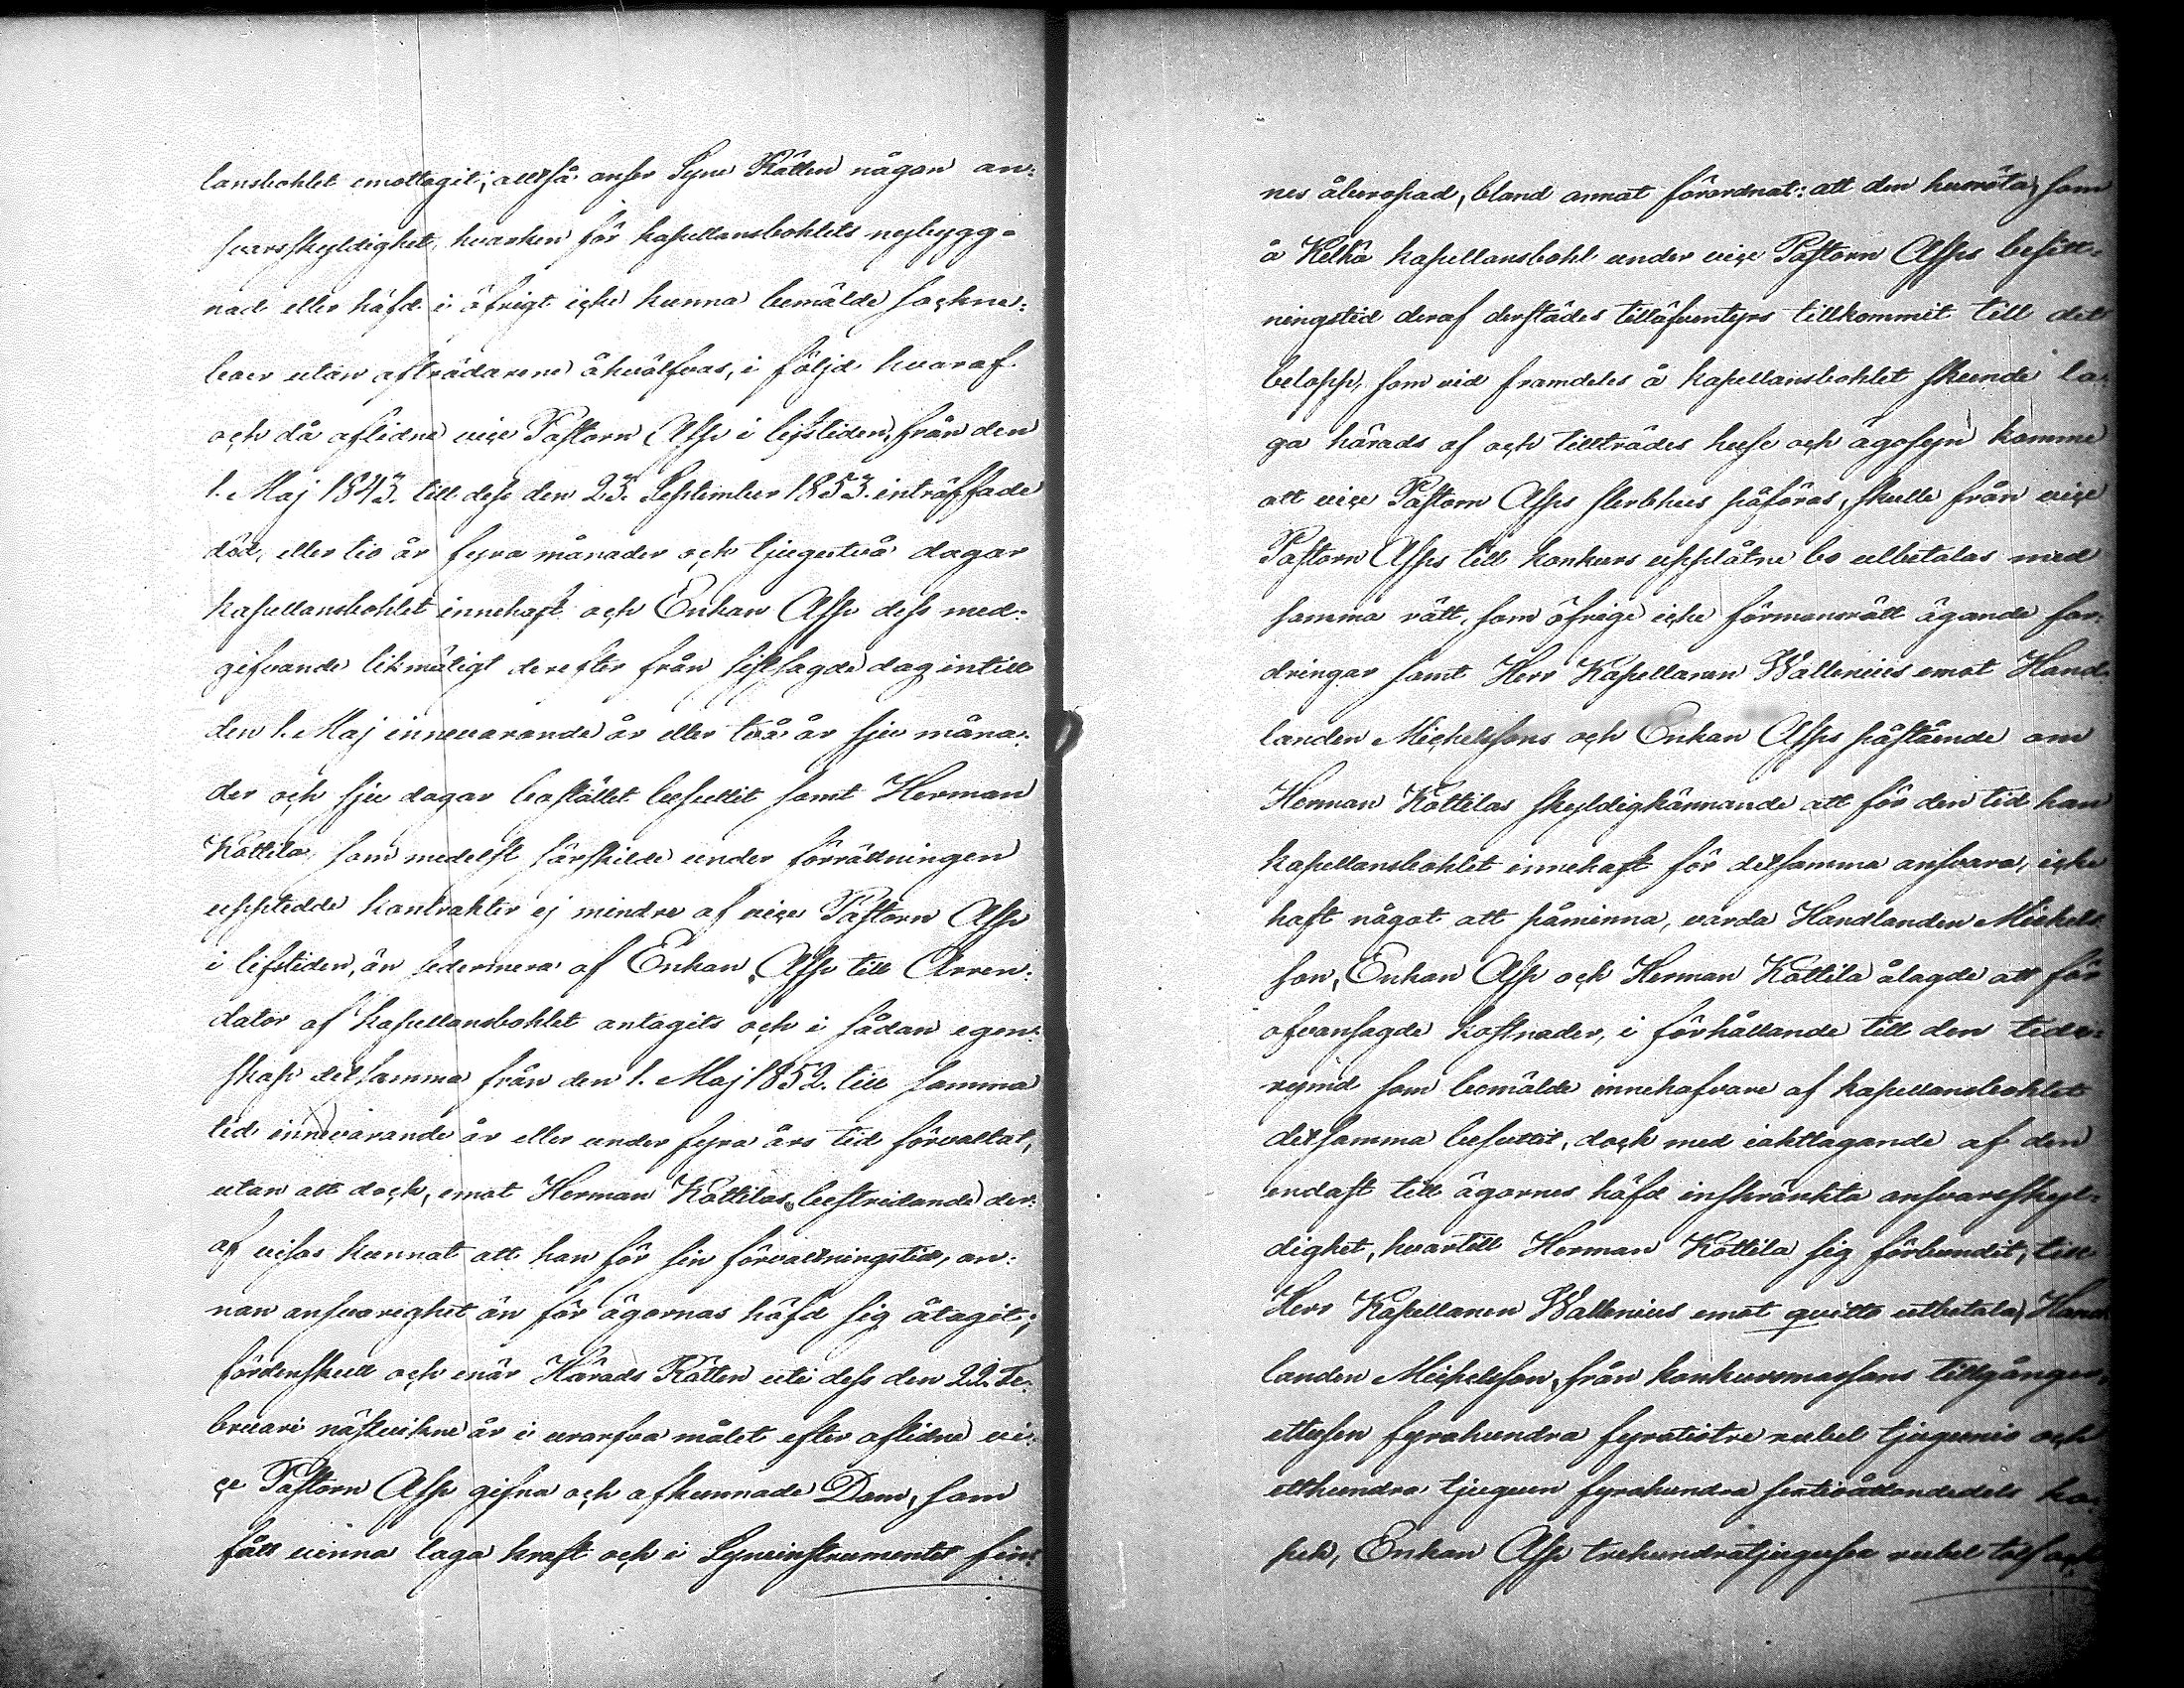 lansbohlet emottagit; alltså anser Syne Rätten någon an-
svarsskyldighet, hvarken för kapellansbohlets nybygg-
nad eller häfd i öfrigt icke kunna bemälde sockne-
boer utan afträdarene åhvälfvas, i följd hvaraf
och då aflidne vice Pastorn Asp i lifstiden, från den
1. Maj 1843. till dess den 23. September 1853. inträffade
död, eller tio år fyra månader och tjugutvå dagar
kapellansbohlet innehaft och Enkan Asp dess med-
gifvande likmätigt derefter från sistsagde dag intill
den 1. Maj innevarande år eller två år sju måna-
der och sju dagar bostället besuttit samt Herman
Kottila, som medelst särskilde under förrättningen
upptedde kontrakter ej mindre af vice Pastorn Asp
i lifstiden, än sedermera af Enkan Asp till Arren-
dator af kapellansbohlet antagits och i sådan egen-
skap detsamma från den 1. Maj 1852. till samma
tid innevarande år eller under fyra års tid förvaltat,
utan att dock, emot Herman Kottilas bestridande der-
af visas kunnat att han för sin förvaltningstid, an-
nan ansvarighet än för ägornas häfd sig åtagit;
fördenskull och enär Härads Rätten uti dess den 22. Fe-
bruari nästvikne år i urarfva målet efter aflidne vi-
ce Pastorn Asp gifna och afkunnade Dom, som
fått vinna laga kraft och i Syneinstrumentet fin-
nes åberopad, bland annat förordnat: att den husröta, som
å Kelhä kapellansbohl under vice Pastorn Asps besitt-
ningstid deraf derstädes tilläfventyrs tillkommit till det
belopp, som vid framdeles å kapellansbohlet skeende la-
ga härads af och tillträdes huse och ägosyn komme
att vice Pastorn Asps sterbhus påföras, skulle från vice
Pastorn Asps till konkurs upplåtne bo utbetalas med
samma rätt, som öfrige icke förmonsrätt ägande for-
dringar samt Herr Kapellanen Wallenius emot Hand-
landen Michelssons och Enkan Asps påstående om
Herman Kottilas skyldigkännande att för den tid han
kapellansbohlet innehaft för detsamma ansvara, icke
haft något att påminna, varda Handlanden Michels-
son, Enkan Asp och Herman Kottila ålagde att för
ofvansagde kostnader, i förhållande till den tide-
rymd som bemälde innehafvare af kapellansbohlet
detsamma besuttit, dock med iakttagande af den
endast till ägornes häfd inskränkta ansvarsskyl-
dighet, hvartill Herman Kottila sig förbundit, till
Herr Kapellanen Wallenius emot qvitto utbetala, Hand-
landen Michelsson, från konkursmassans tillgångar,
ettusen fyrahundra fyratiotre rubel tjugunio och
etthundra tjuguen fyrahundra sextioåttondedels ko-
pek, Enkan Asp trehundratjugusex rubel tolf och